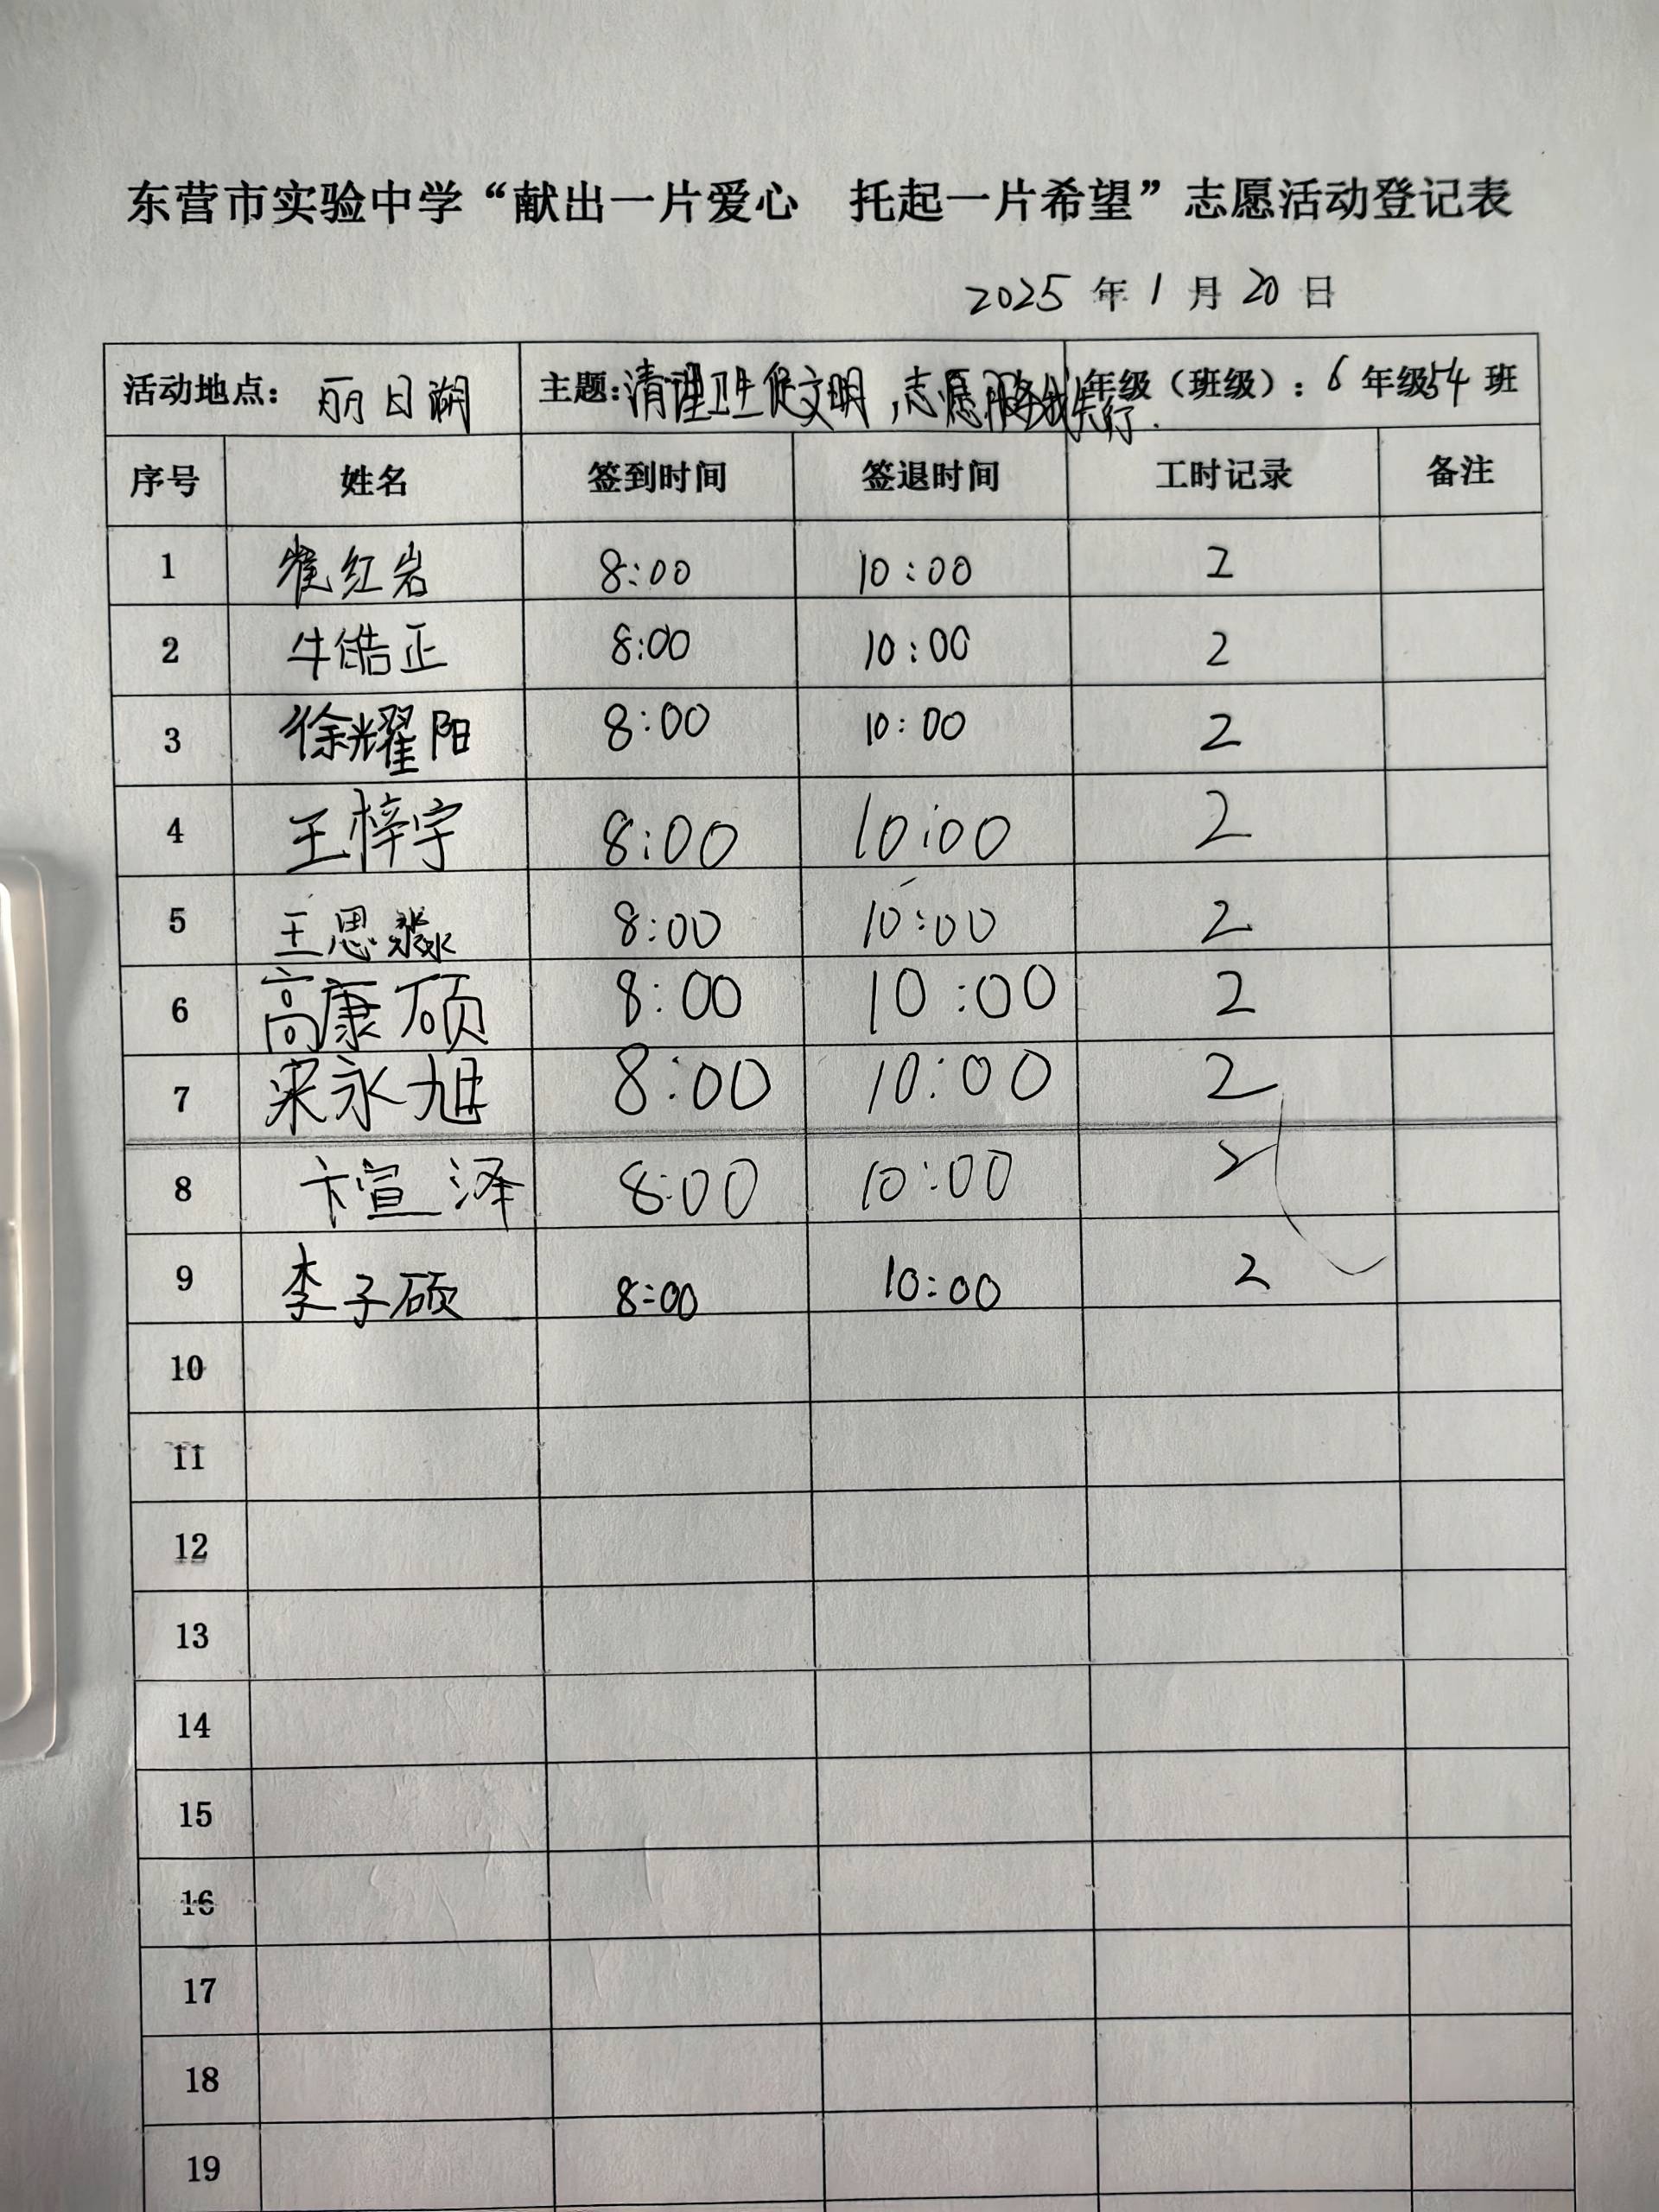 东营市实验中学“献出一片爱心 托起一片希望”志愿活动登记表
2025 年 1 月 20 日
活动地点：丽日湖 主题：清理卫生促文明，志愿服务我先行. 年级（班级）：6 年级54 班
序号 姓名 签到时间 签退时间 工时记录 备注
1 红岩 8:00 10:00 2
2 牛皓正 8:00 10:00 2
3 徐耀阳 8:00 10:00 2
4 王梓宇 8:00 10:00 2
5 王思淼 8:00 10:00 2
6 高康硕 8:00 10:00 2
7 梁永旭 8:00 10:00 2
8 卞萱泽 8:00 10:00 2
9 李子硕 8:00 10:00 2
10
11
12
13
14
15
16
17
18
19